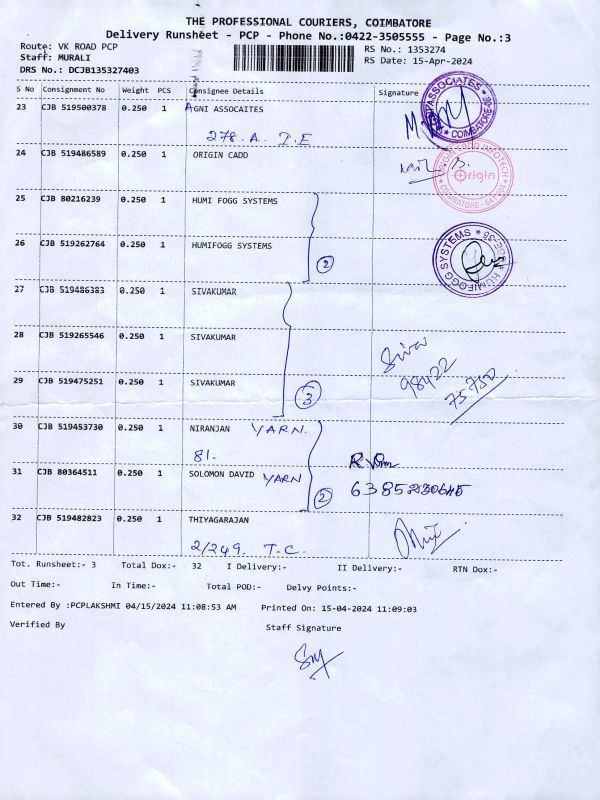 THE PROFESSIONAL COURIERS, COIMBATORE
Delivery Runsheet - PCP - Phone No.:0422-3505555 - Page No.:3
Route: VK ROAD PCP RS No.: 1353274
Staff: MURALI RS Date: 15-Apr-2024
DRS No.: DCJB135327403
S No Consignment No Weight PCS Consignee Details Signature
23 CJB 519500378 0.250 1 AGNI ASSOCAITES
278. A. I.E
24 CJB 519486589 0.250 1 ORIGIN CADD
Origin
25 CJB 80216239 0.250 1 HUMI FOGG SYSTEMS
26 CJB 519262764 0.250 1 HUMIFOGG SYSTEMS
2
27 CJB 519486383 0.250 1 SIVAKUMAR
28 CJB 519265546 0.250 1 SIVAKUMAR
Siva
98422
75750
29 CJB 519475251 0.250 1 SIVAKUMAR
3
30 CJB 519453730 0.250 1 NIRANJAN YARN.
81.
31 CJB 80364511 0.250 1 SOLOMON DAVID YARN
2
32 CJB 519482823 0.250 1 THIYAGARAJAN
2/249. T.C.
Tot. Runsheet:- 3 Total Dox:- 32 I Delivery:- II Delivery:- RTN Dox:-
Out Time:- In Time:- Total POD:- Delvy Points:-
Entered By :PCPLAKSHMI 04/15/2024 11:08:53 AM Printed On: 15-04-2024 11:09:03
Verified By Staff Signature